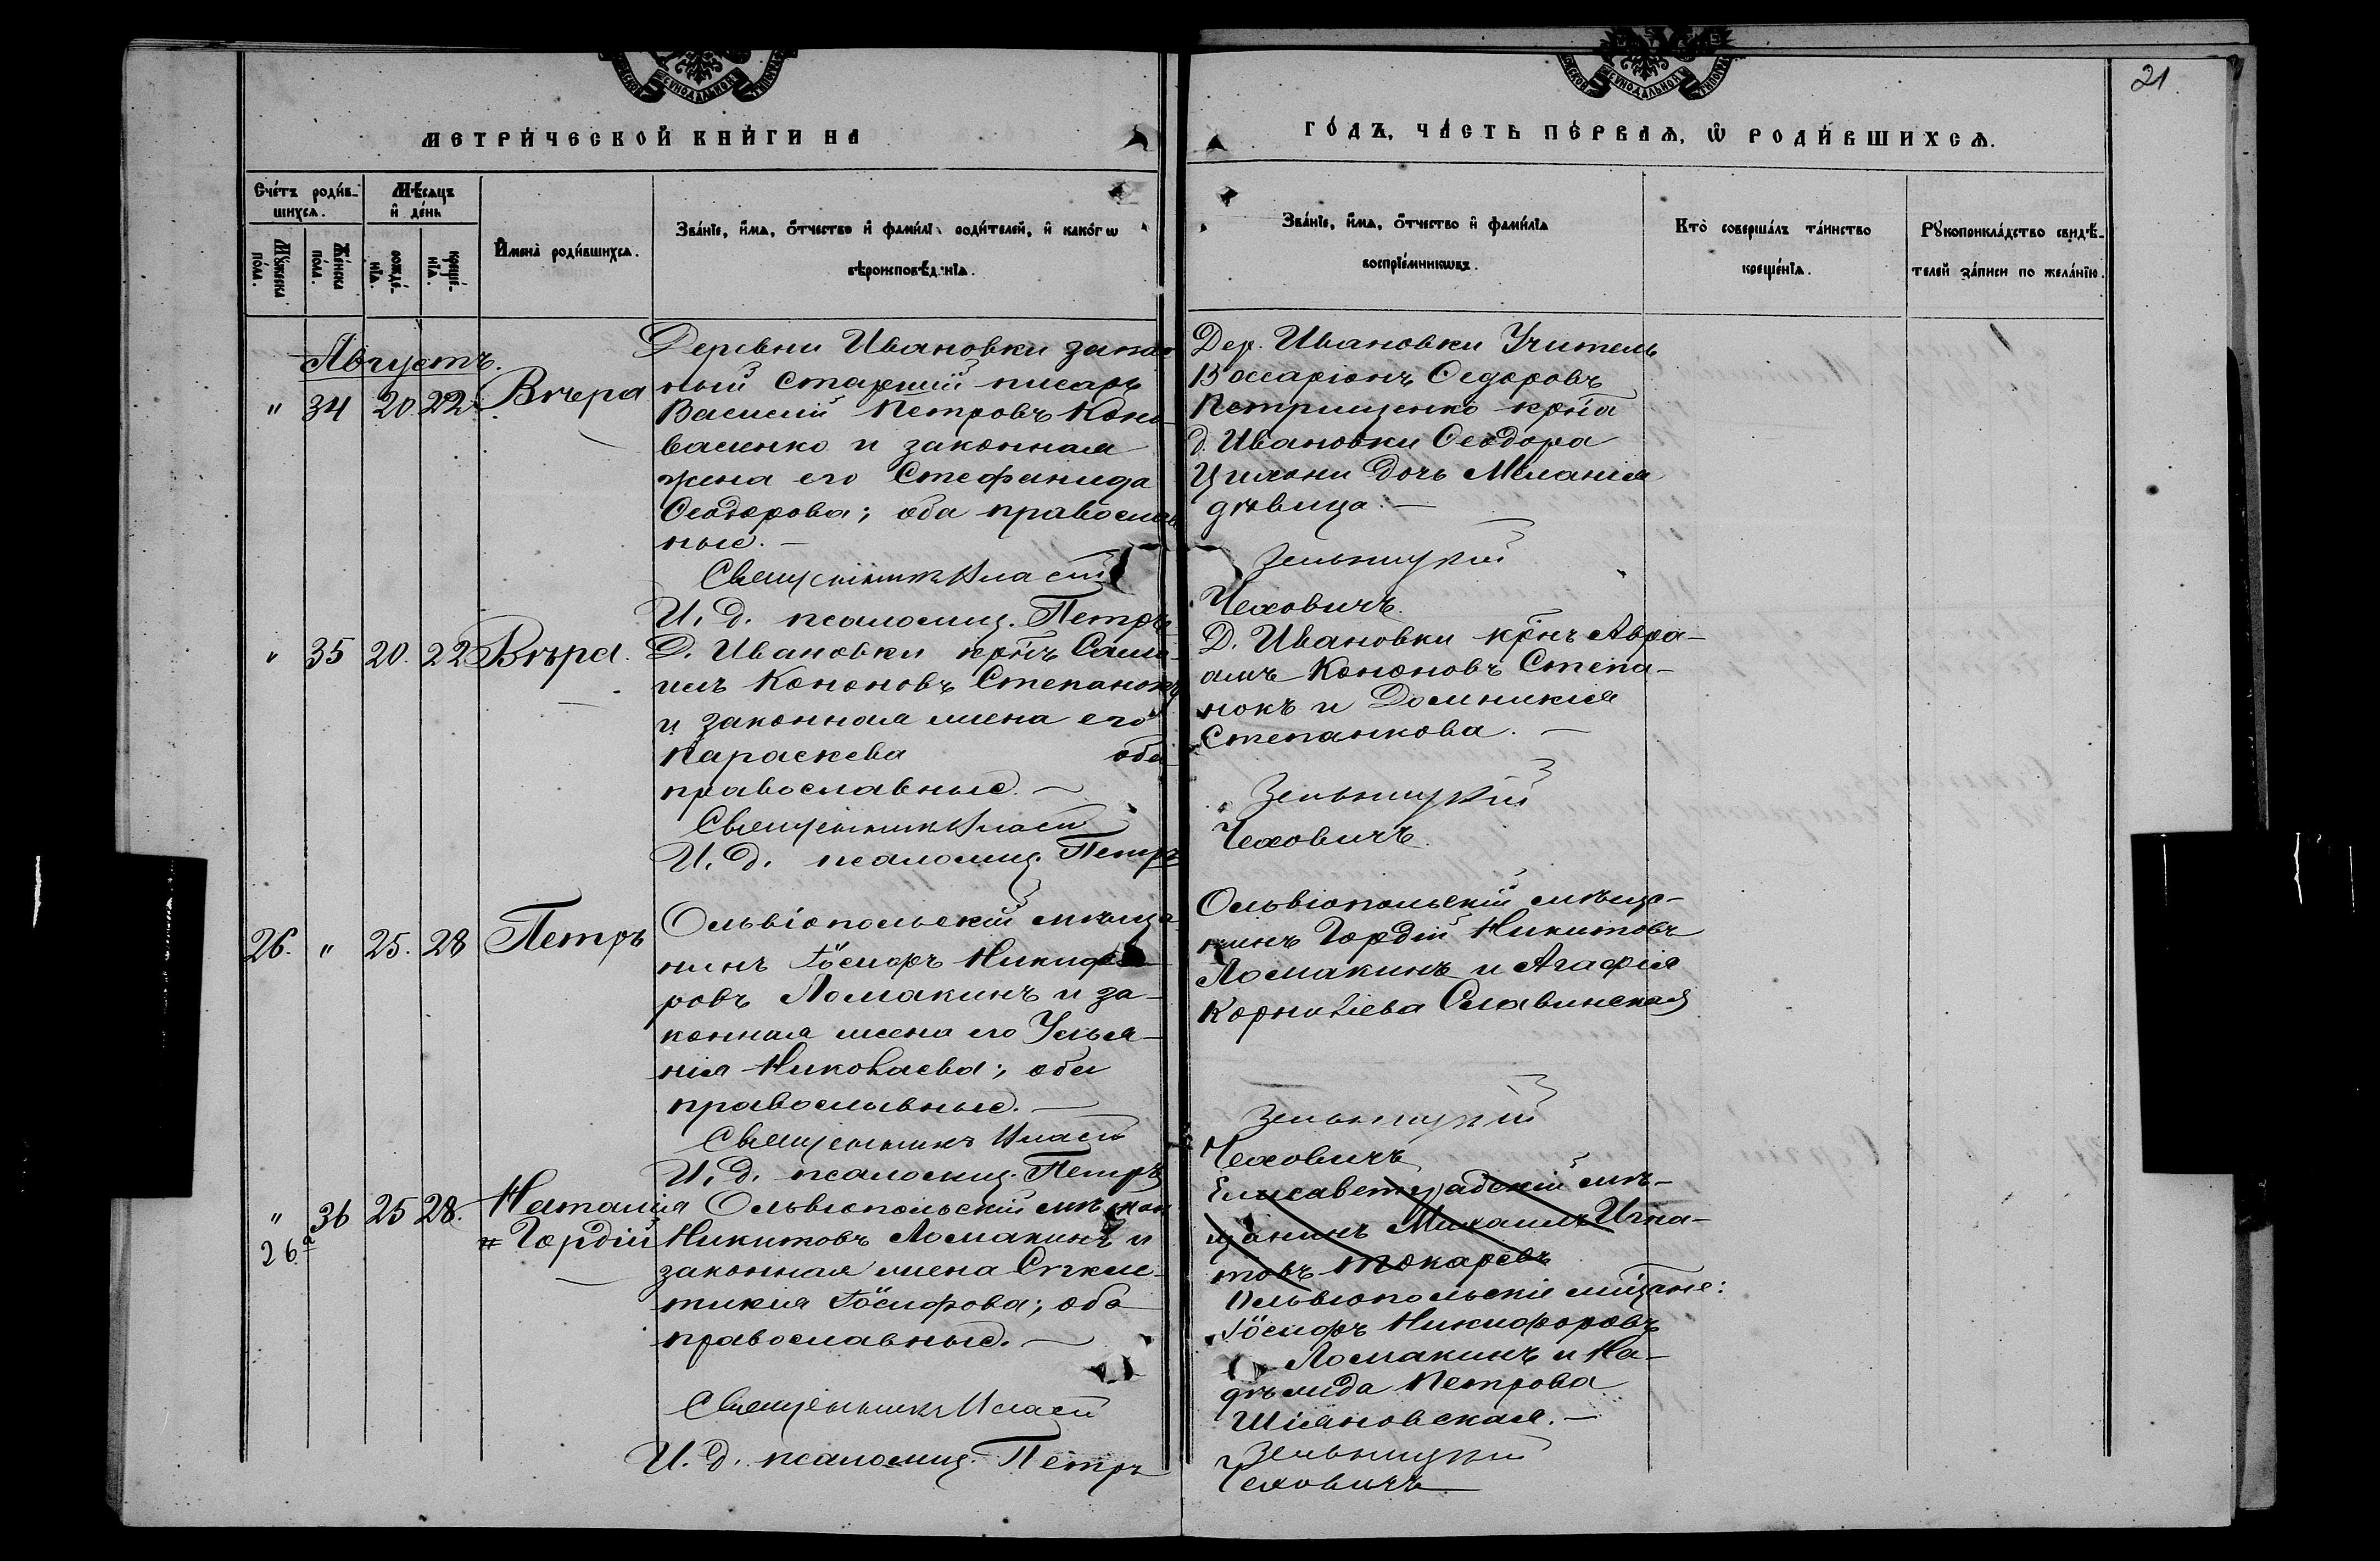 21.
МЕТРИ́ЧЕСКОЙ КНИ́ГИ НА
ГО́ДЪ, ЧА́СТЬ ПЕ́РВАЯ, Ѡ҆ РОДИ́ВШИХСЯ.
Сче́тъ роди́в-
шихся.
Му́жеска
по́ла.
Же́нска
по́ла.
Мѣ́сяцъ
и҆ де́нь
рожде́-
нїѧ.
креще́-
нїѧ.
И҆мена̀ роди́вшихся.
Зва́нїе, и҆́мѧ, ѻ҆́тчество и҆ фами́лїѧ роди́телей, и҆ како́гѡ
вѣроисповѣ́данїѧ.
Зва́нїе, и҆́мѧ, ѻ҆́тчество и҆ фами́лїѧ
воспрїе́мникѡвъ.
Кто̀ соверша́лъ та́инство
креще́нїѧ.
Рꙋкоприкла́дство свидѣ́-
телей за́писи по жела́нїю.
Августъ.
" 34 20 22 Вѣра
Деревни Ивановки запас
ный старшій писарь
Василій Петровъ Коно
валенко и законная
жена его Стефанида
Ѳеодорова; оба православ
ные. —
Священникъ Власій
И. д. псаломщ. Петръ
Дер. Ивановки Учитель
Виссаріонъ Ѳедоровъ
Петрищенко крт̃на
д. Ивановки Ѳеодора
дочь Меланія
дѣвица. —
Зельницкій
Чеховичъ.
" 35 20. 22 Вѣра.
Д. Ивановки крт̃нъ Саму-
илъ Кононовъ Степанокъ
и законная жена его
Параскева оба
православные. —
Священникъ Власій
И. д. псаломщ. Петръ
Д. Ивановки крт̃нъ Авра-
амъ Кононовъ Степа-
нокъ и Домникія
Степанкова. —
Зельницкій
Чеховичъ.
26. " 25. 28 Петръ
Ольвіопольскій мѣща
нинъ Іосифъ Никифо
ровъ Ломакинъ и за-
конная жена его Улья-
нія Николаева; оба
православные. —
Священникъ Власій
И. д. псаломщ. Петръ
Ольвіопольскій мѣща-
нинъ Гордій Никитовъ
Ломакинъ и Агафія
Корнилієва Славинская
Зельницкій
Чеховичъ
" 36 25 28. Наталія
26.а
Ольвіопольскій мѣщан
Гордій Никитовъ Ломакинъ и
законная жена
Іосифова; оба
православные. —
Священникъ Власій
И. д. псаломщ. Петръ
Елисаветградскій мѣ-
щанинъ Михаилъ Игна-
товъ Токаревъ
Ольвіопольскіе мѣщане:
Іосифъ Никифоровъ
Ломакинъ и На-
Петрова
Шіяновская. —
Зельницкій
Чеховичъ